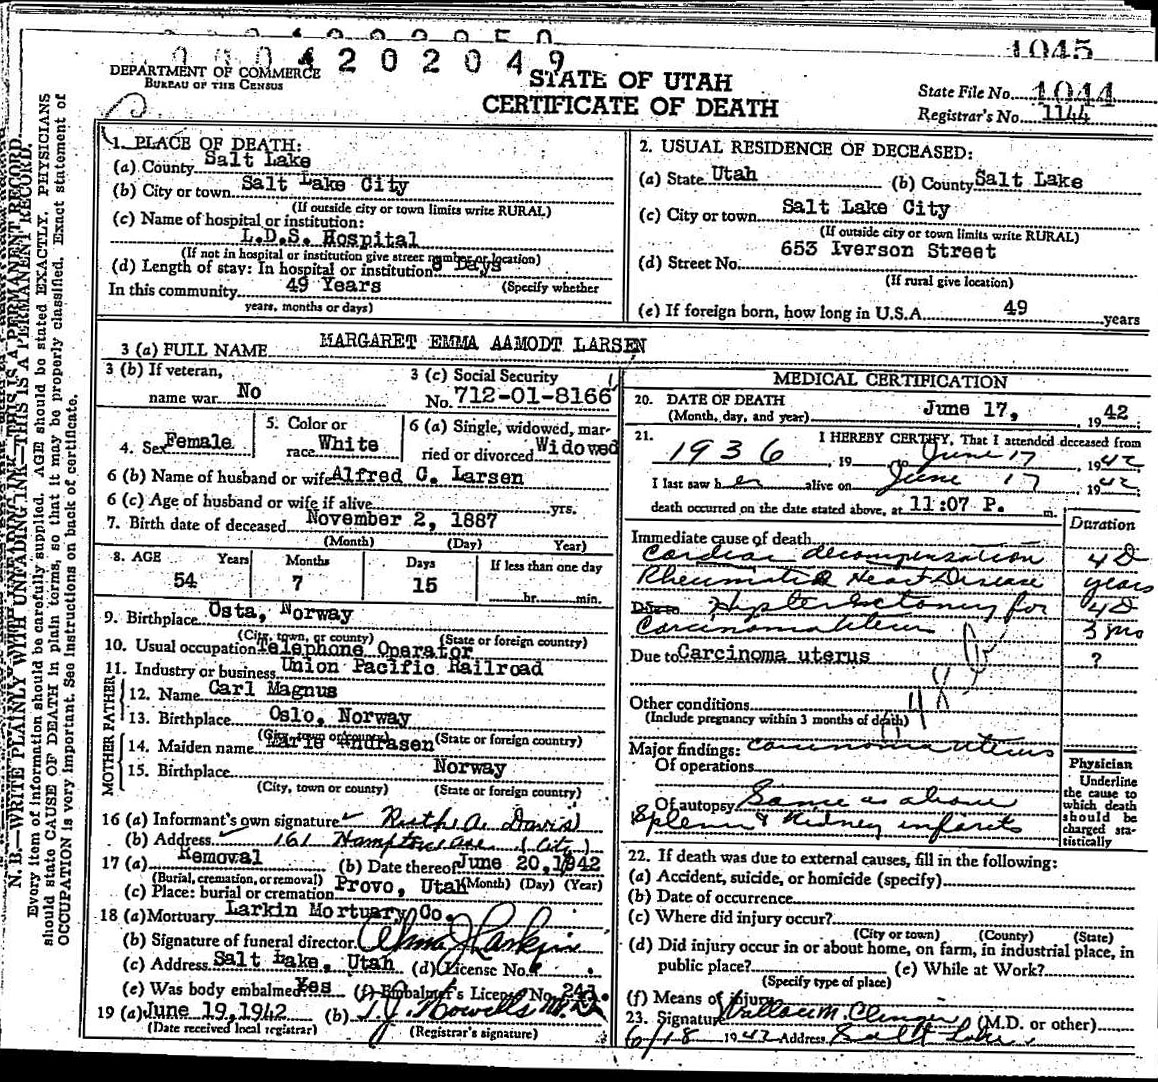 0 0 0 4 2 0 2 0 4 9
1045
DEPARTMENT OF COMMERCE
BUREAU OF THE CENSUS
STATE OF UTAH
CERTIFICATE OF DEATH
State File No. 1044
Registrar's No. 1144
N. B.—WRITE PLAINLY WITH UNFADING INK—THIS IS A PERMANENT RECORD.
Every item of information should be carefully supplied. AGE should be stated EXACTLY. PHYSICIANS
should state CAUSE OF DEATH in plain terms, so that it may be properly classified. Exact statement of
OCCUPATION is very important. See instructions on back of certificate.
1. PLACE OF DEATH:
(a) County Salt Lake
(b) City or town Salt Lake City
(If outside city or town limits write RURAL)
(c) Name of hospital or institution:
L.D.S. Hospital
(If not in hospital or institution give street number or location)
(d) Length of stay: In hospital or institution 8 Days
In this community 49 Years (Specify whether
years, months or days)
2. USUAL RESIDENCE OF DECEASED:
(a) State Utah (b) County Salt Lake
(c) City or town Salt Lake City
(If outside city or town limits write RURAL)
(d) Street No. 653 Iverson Street
(If rural give location)
(e) If foreign born, how long in U.S.A. 49 years
3 (a) FULL NAME MARGARET EMMA AAMODT LARSEN
3 (b) If veteran, name war No
3 (c) Social Security No. 712-01-8166
4. Sex Female
5. Color or race White
6 (a) Single, widowed, married or divorced Widowed
6 (b) Name of husband or wife Alfred C. Larsen
6 (c) Age of husband or wife if alive yrs.
7. Birth date of deceased November 2, 1887
(Month) (Day) Year)
8. AGE Years Months Days If less than one day
54 7 15 hr. min.
9. Birthplace Osta, Norway
(City, town, or county) (State or foreign country)
10. Usual occupation Telephone Operator
11. Industry or business Union Pacific Railroad
FATHER
12. Name Carl Magnus
13. Birthplace Oslo, Norway
(City, town or county) (State or foreign country)
MOTHER
14. Maiden name Marie Andrasen
15. Birthplace Norway
(City, town or county) (State or foreign country)
16 (a) Informant's own signature Ruth A. Davis
(b) Address 161 Hampton Ave (City)
17 (a) Removal (b) Date thereof June 20, 1942
(Burial, cremation, or removal) (Month) (Day) (Year)
(c) Place: burial or cremation Provo, Utah
18 (a) Mortuary Larkin Mortuary Co.
(b) Signature of funeral director Alma J Larkin
(c) Address Salt Lake, Utah (d) License No.
(e) Was body embalmed Yes (f) Embalmer's License No. 241
19 (a) June 19, 1942 (b) T.J. Howells M.D.
(Date received local registrar) (Registrar's signature)
MEDICAL CERTIFICATION
20. DATE OF DEATH
(Month, day, and year) June 17, 1942
21. I HEREBY CERTIFY, That I attended deceased from
1936, 19 June 17, 1942
I last saw her alive on June 17, 1942
death occurred on the date stated above, at 11:07 P. m.
Duration
Immediate cause of death
Cardiac decompensation 4 D
Rheumatic Heart Disease years
Due to Hysterectomy for 4 D
Carcinoma Uterus 3 mo
Due to Carcinoma uterus ?
48
Other conditions
(Include pregnancy within 3 months of death)
Major findings: Carcinoma uterus
Of operations
Of autopsy Same as above
Spleen & Kidney infarcts
Physician
Underline
the cause to
which death
should be
charged sta-
tistically
22. If death was due to external causes, fill in the following:
(a) Accident, suicide, or homicide (specify)
(b) Date of occurrence
(c) Where did injury occur?
(City or town) (County) (State)
(d) Did injury occur in or about home, on farm, in industrial place, in
public place? (e) While at Work?
(Specify type of place)
(f) Means of injury
23. Signature (M.D. or other)
6/18 1942 Address Salt Lake